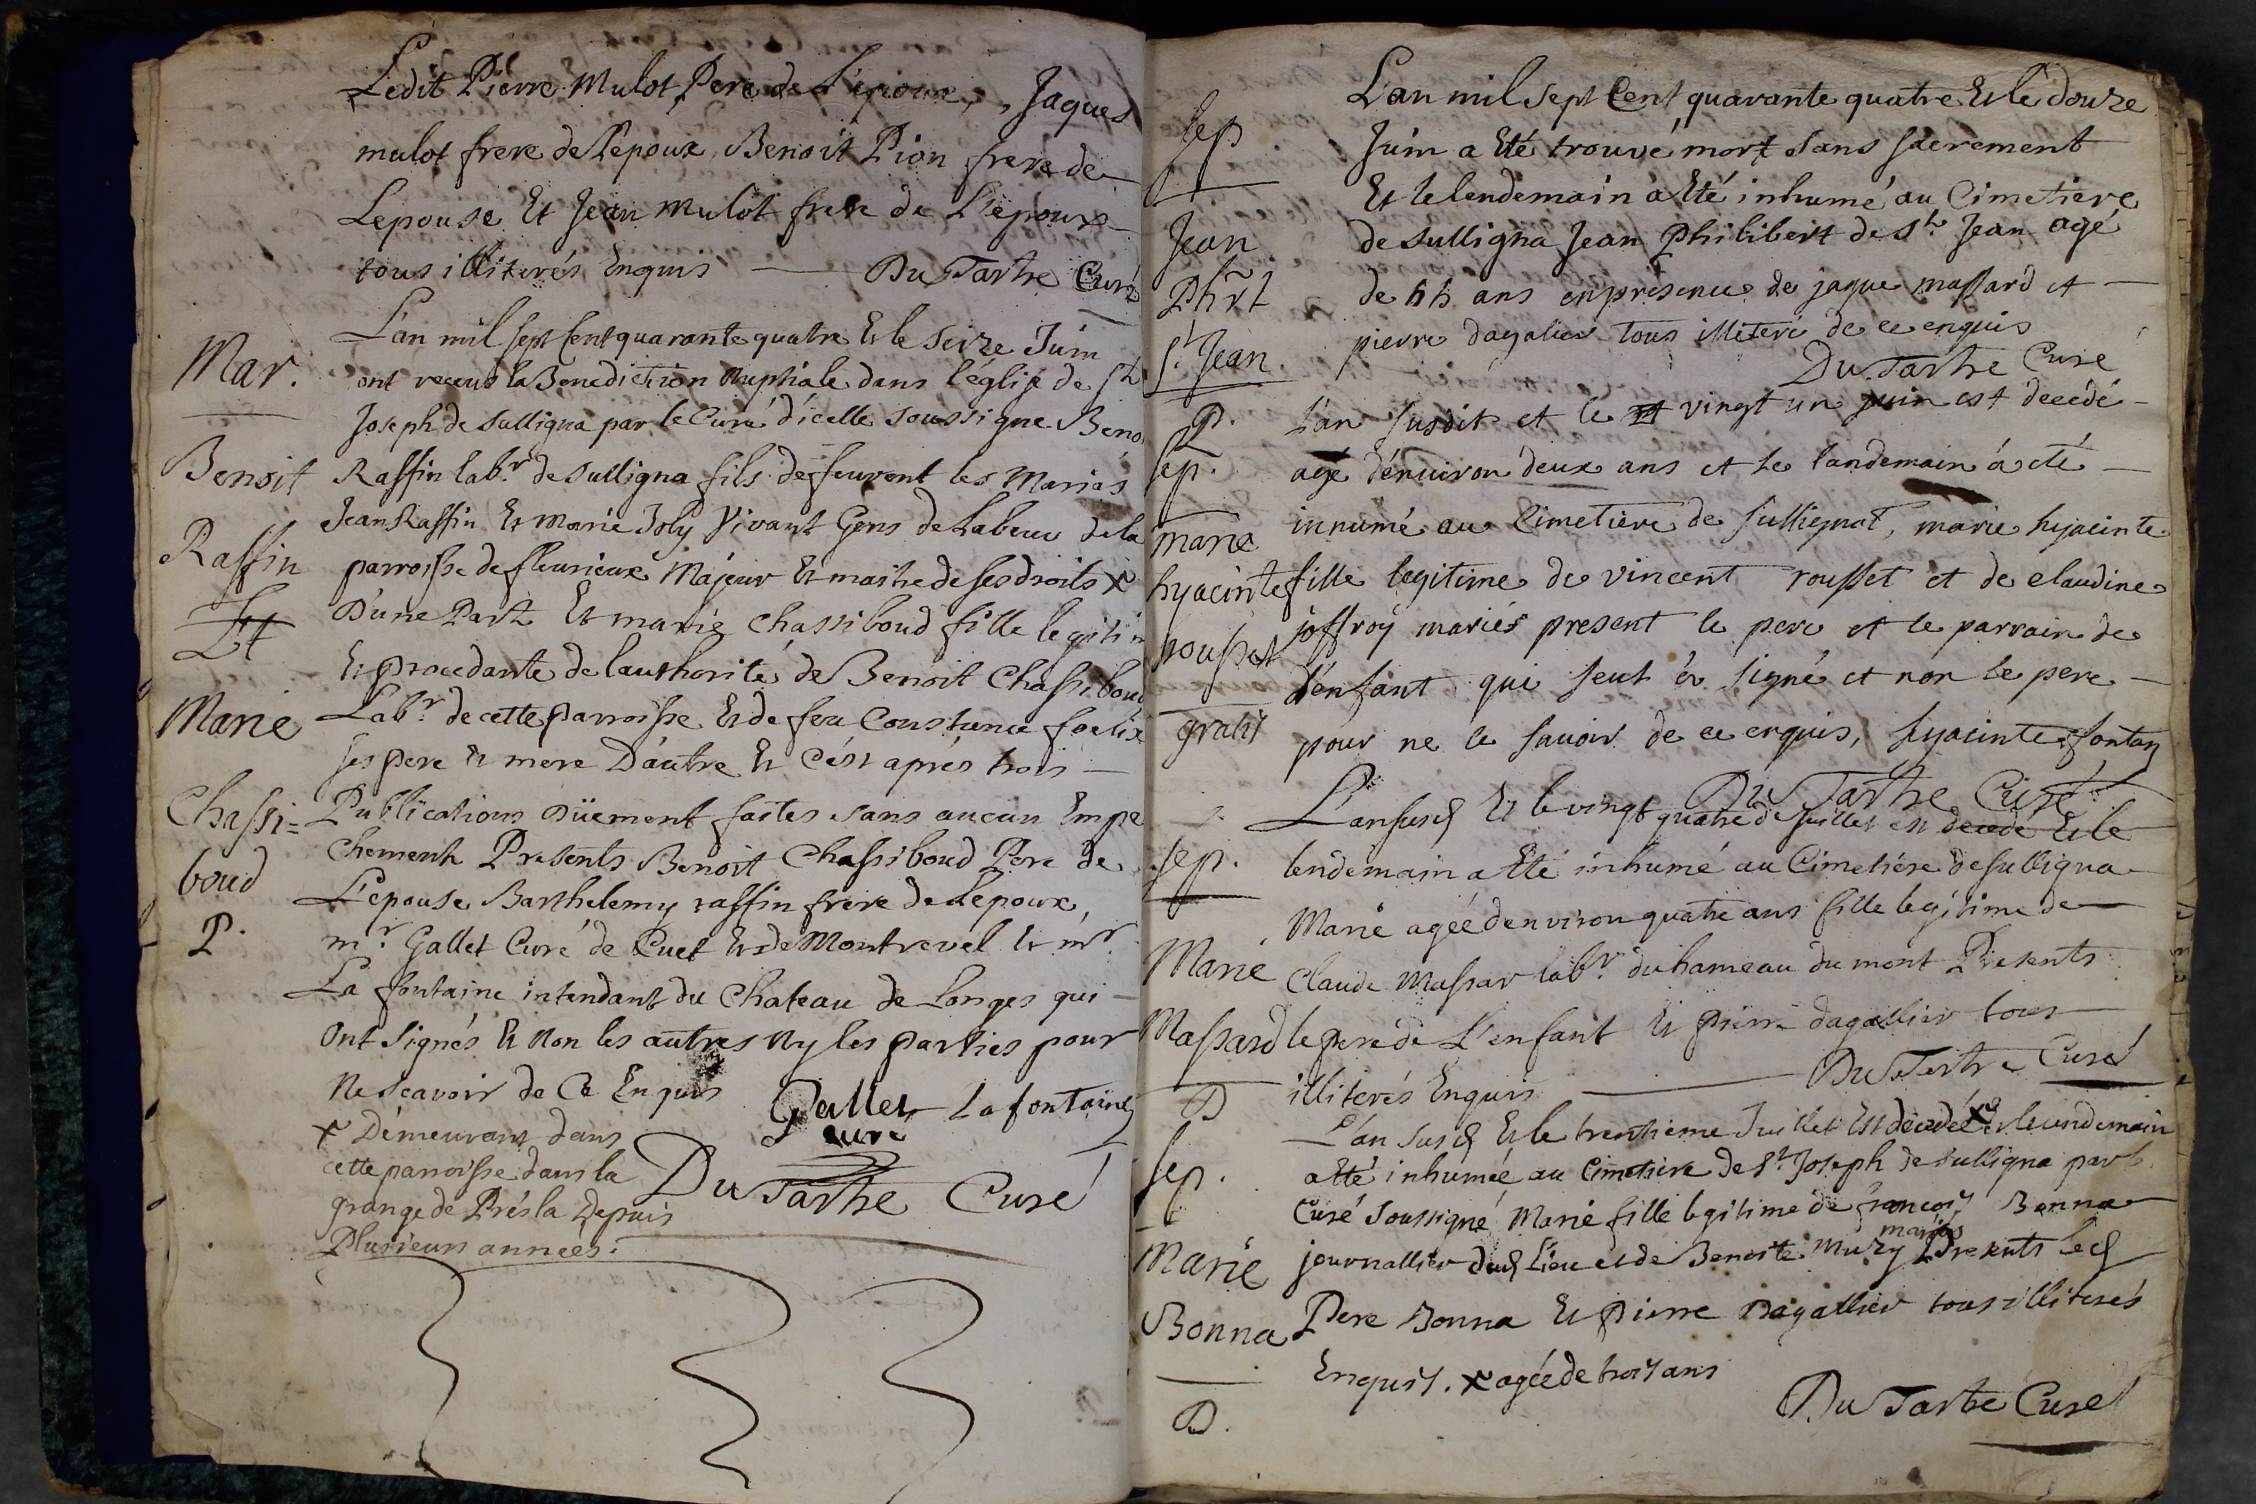 Ledit Pierre Mulot Pere de L'epoux, Jaques
mulot frere de l'epoux, Benoit Pion frere de
Lepouse Et Jean Mulot frere de L'epoux
tous illiterés Enquis Du Tartre Curé
Mar.
L'an mil sept Cent quarante quatre Et le seize Juin
ont receus la Benediction Nuptiale dans l'église de St
Joseph de Sulligna par le Curé d'icelle soussigné Beno
Benoit
Raffin labr de Sulligna fils defeurent les Mariés
Jean Raffin Et Marie Joly Vivant Gens de Labeur de la
Raffin
parroisse de fleurieux Majeur Et maitre de ses droits x
Et
D'une Part Et marie Chassiboud fille legitim
Et procedante de lauthorité de Benoit Chassiboud
Marie
Labr de cette parroisse Et de feu Constance
ses pere Et mere D'autre Et c'est aprés trois
Chassi=
Publications düement faites sans aucun Empe
chement Presents Benoit Chassiboud Pere de
boud
L'epouse Barthelemy raffin frere de Lepoux,
P.
mr Gallet Curé de Cuet Et de Montrevel Et mr
La fontaine intendant du Chateau de Longes qui
Ont signés Et Non les autres Ny les parties pour
Ne scavoir de Ce Enquis
Gallet Lafontaine
curé
x Demeurant dans
cette parroisse dans la
grange de Présla Depuis
Plusieurs années.
Du Tartre Curé
Sep
L'an mil sept Cent quarante quatre Et le douze
Juin a Eté trouvé mort sans sacrement
Et le lendemain a Eté inhumé au Cimetiere
Jean
de Sulligna Jean Philibert de St Jean agé
Phrt
de ans en presence de jaque massard et
St Jean
pierre dagalier tous illiteré de ce enquis
Du Tartre Curé
P.
L'an susdit et le vingt un juin est decedé
sep.
agé d'environ deux ans et le landemain á eté
marie
innumé au Cimetiere de sullignat, marie hyacinte
hyacinte
fille legitime de vincent rousset et de claudine
rousset
joffroy mariés present le pere et le parrain de
l'enfant qui seul á signé et non le pere
gratis
pour ne le savoir de ce enquis, hyacinte fontan
Du Tartre Curé
L'an susd Et le vingt quatre de Juillet est decedé Et le
sep.
lendemain a Eté inhumé au Cimetiére de Sulligna
Marie agée d'environ quatre ans fille legitime de
Marie
Claude Massar labr du hameau du mont Presents
Massard
le pere de L'enfant Et Pierre dagallier tous
illiterés Enquis Du Tartre Curé
D
L'an susd Et le trentieme Juillet Est decedée x Et le lendemain
sep.
a Eté inhumée au Cimetiere de St Joseph de Sulligna par le
Curé Soussigné Marie fille legitime de françois Bonna
mariés
Marie
journallier dud Lieu et de Benoite Muzy Presents led
Bonna
Pere Bonna Et Pierre Dagallier tous illiterés
Enquis. x agée de trois ans
D.
Du Tartre Curé